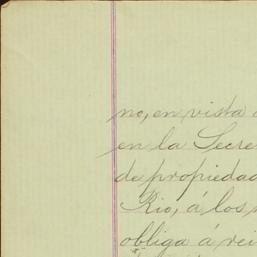 no, en vista
en la Secre
de propiedad
Rio, á los
obliga á rei